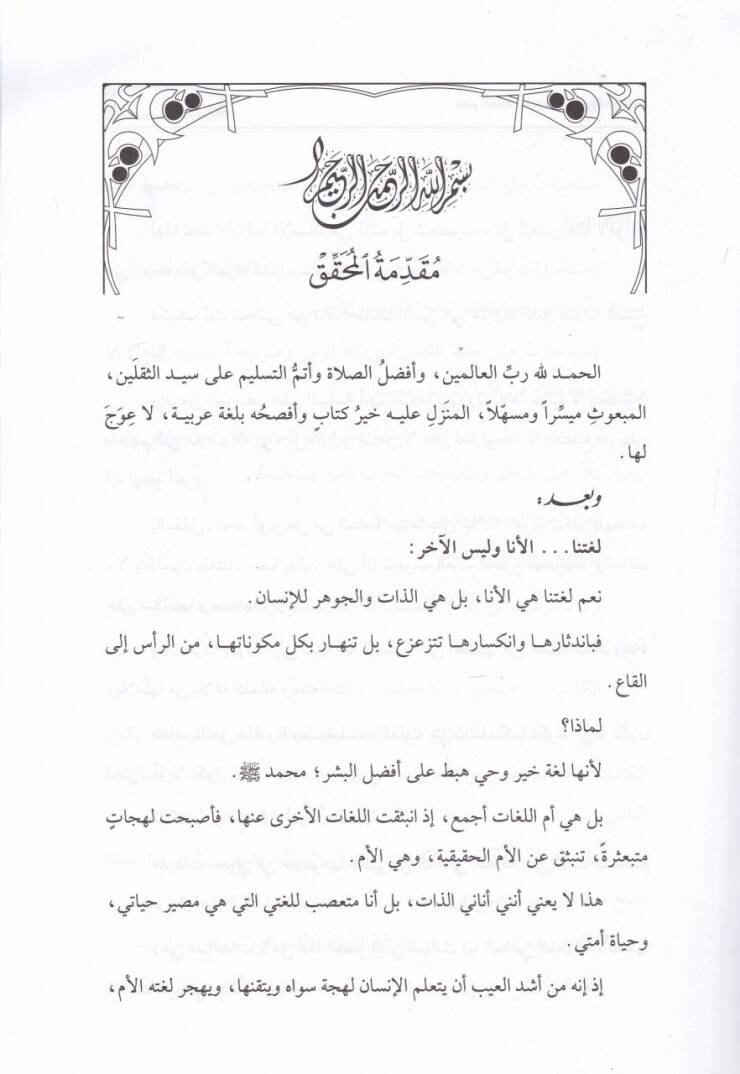 بسم الله الرحمن الرحيم
مُقَدِّمَةُ ٱلْمُحَقِّقْ
الحمد لله ربِّ العالمين، وأفضلُ الصلاة وأتمُّ التسليم على سيد الثقلَين،
المبعوثِ ميسِّراً ومسهّلاً، المنزلِ عليه خيرُ كتابٍ وأفصحُه بلغة عربية، لا عِوَجَ
لها.
وبعد:
لغتنا... الأنا وليس الآخر:
نعم لغتنا هي الأنا، بل هي الذات والجوهر للإنسان.
فباندثارها وانكسارها تتزعزع، بل تنهار بكل مكوناتها، من الرأس إلى
القاع.
لماذا؟
لأنها لغة خير وحي هبط على أفضل البشر؛ محمد ﷺ.
بل هي أم اللغات أجمع، إذ انبثقت اللغات الأخرى عنها، فأصبحت لهجاتٍ
متبعثرةً، تنبثق عن الأم الحقيقية، وهي الأم.
هذا لا يعني أنني أناني الذات، بل أنا متعصب للغتي التي هي مصير حياتي،
وحياة أمتي.
إذ إنه من أشد العيب أن يتعلم الإنسان لهجة سواه ويتقنها، ويهجر لغته الأم،